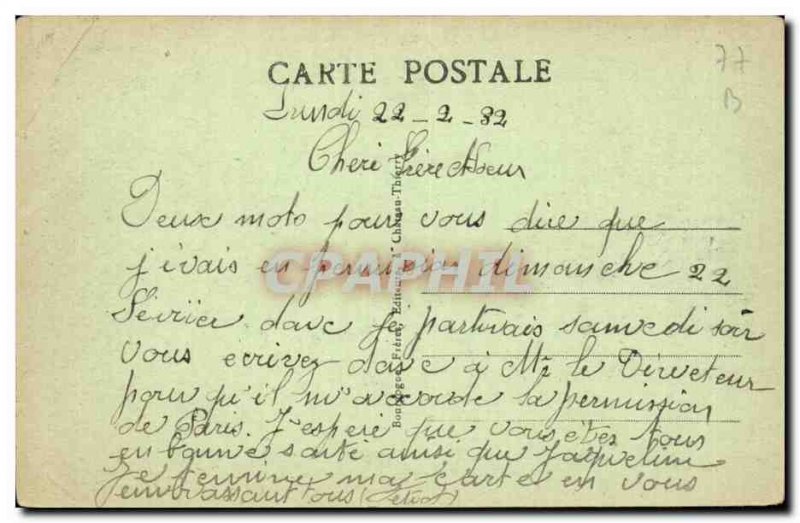 77
B
CARTE POSTALE
Lundi 22-2-32
Cheri Frère et Soeur
Deux moto pour vous dire que
j'ivais en permision dimanche 22
Fevrier donc je partirais samedi soir
vous ecrivez donc à Mr le Directeur
pour qu'il m'accorde la permission
de Paris. J'espere que vous êtes tous
en bonne santé ainsi que Jaqueline
Je termine ma carte en vous
embrassant tous
Bourgogne Frères, Editeurs à Château-Thierry
CPAPHIL